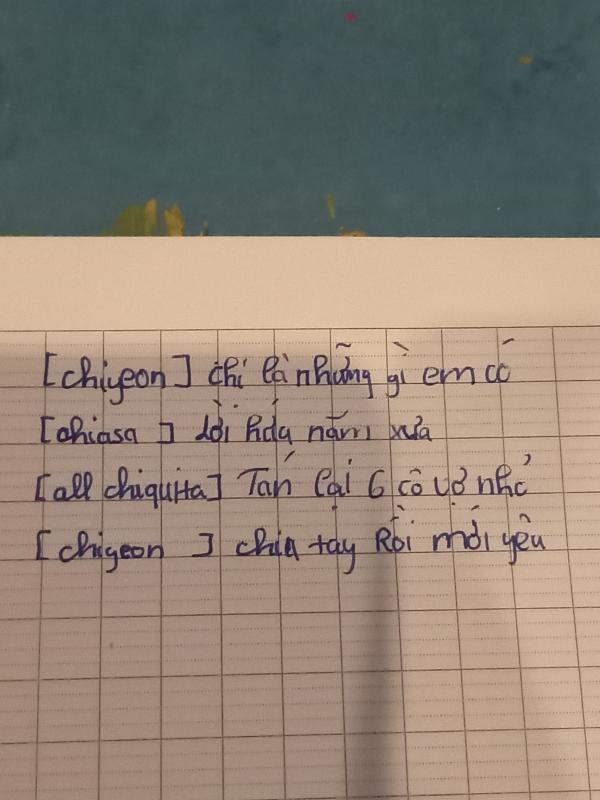 [chiyeon] chỉ là những gì em có
[chiasa] lời hứa năm xưa
[all chiquita] Tán lại 6 cô vợ nhỏ
[chiyeon] chia tay Rồi mới yêu